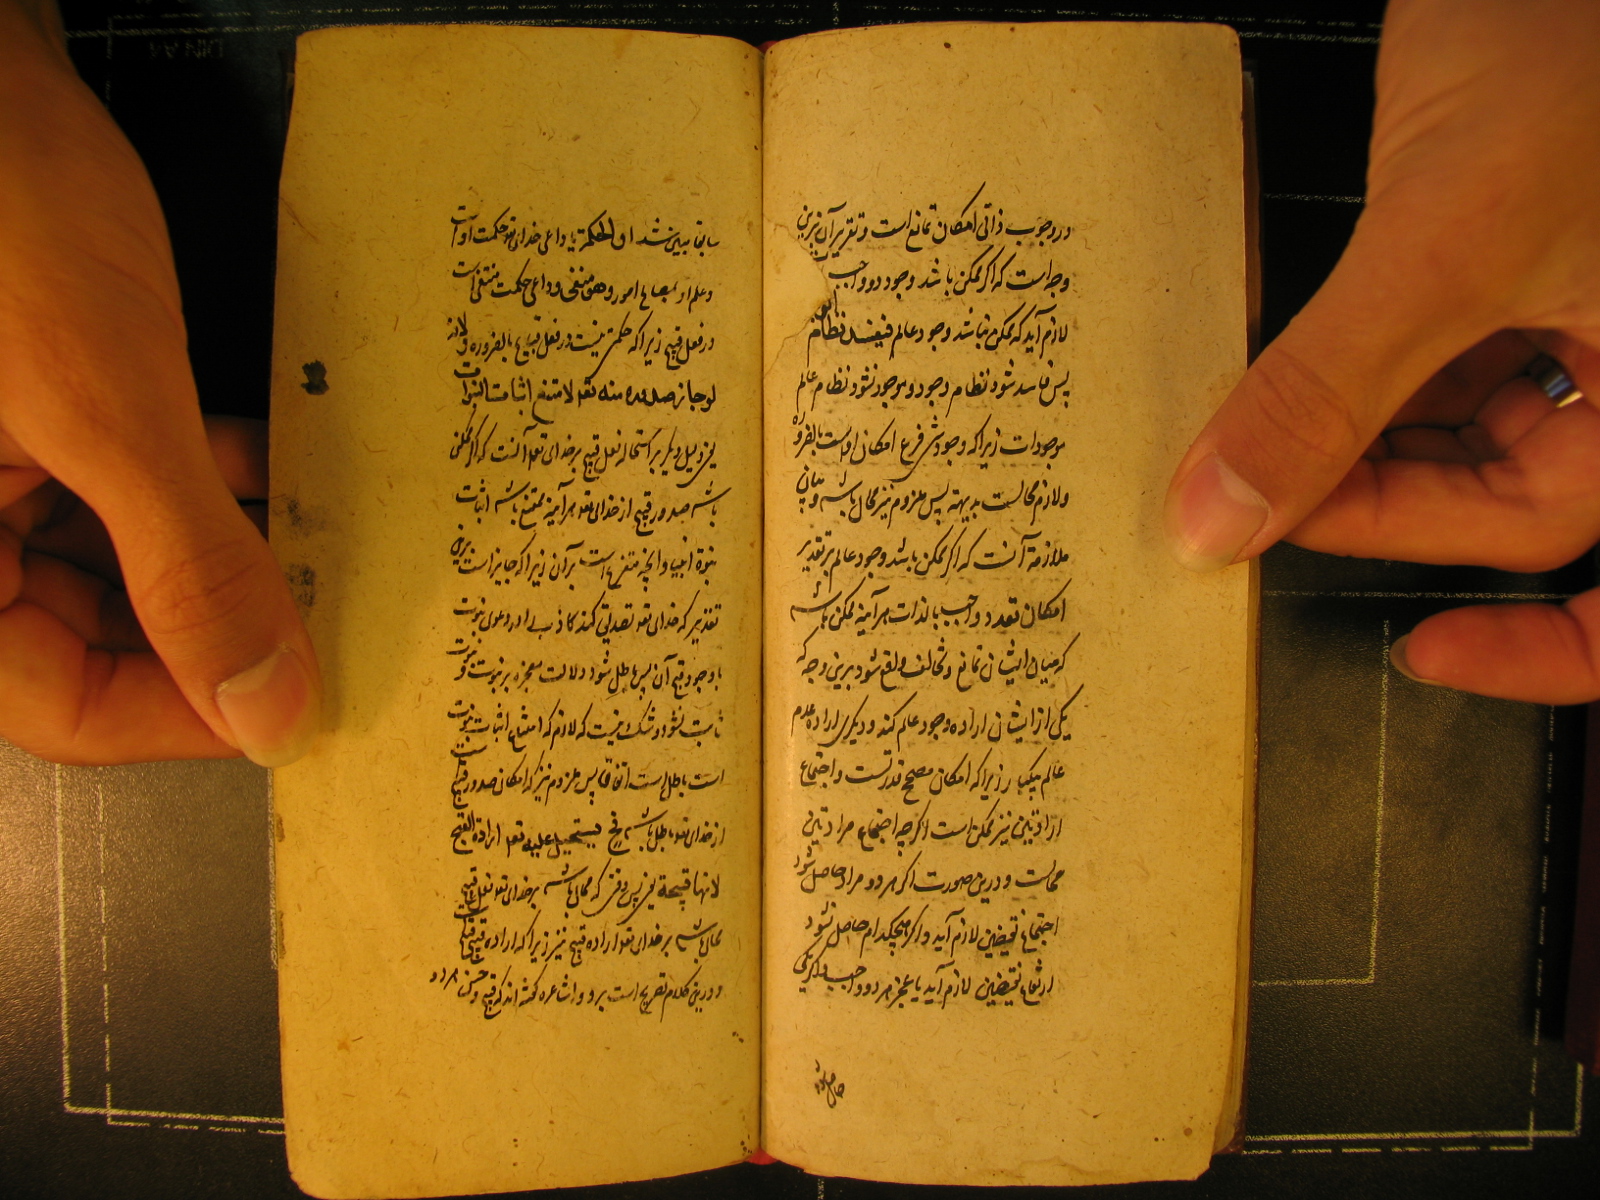 در وجوب ذاتی امکان تمانع است و تقریر آن برین
وجه است که اگر ممکن باشد وجود دو واجب
لازم آید که ممکن نباشد وجود عالم فیفسد نظام
پس فاسد شود نظام وجود و موجود نشود نظام عالم
موجودات زیرا که وجودش فرع امکان اوست بالضروره
و لازم محالست بدیهة پس ملزوم نیز محال باشد و بیان
ملازمة آنست که اگر ممکن باشد وجود عالم بر تقدیر
امکان تعدد واجب بالذات هر آینه ممکن باشد
که میان ایشان تمانع و تخالف واقع شود برین وجه که
یکی از ایشان اراده وجود عالم کند و دیگری اراده عدم
عالم زیرا که امکان مصحح قدرتست و اجتماع
ارادتین نیز ممکن است اگر چه اجتماع مرادین
محالست و درین صورت اگر هر دو مراد حاصل شود
اجتماع نقیضین لازم آید و اگر هیچکدام حاصل نشود
ارتفاع نقیضین لازم آید یا عجز هر دو واجب و اگر یکی
حاصل شود
او الحکمة یا داعی خدای تع حکمت اوست
و علم او امور و هو منتفی و داعی حکمت منتفی است
در فعل قبیح زیرا که حکمتی نیست در فعل قبایح بالضروره و لانه
لو جاز صدوره منه تع لامتنع اثبات النبوات
یعنی دلیل دیگر بر استحاله فعل قبیح بر خدای تع آنست که اگر ممکن
باشد صدور قبیح از خدای تع هر آینه ممتنع باشد اثبات
نبوة انبیا و آنچه متفرع است بر آن زیرا که جایز است برین
تقدیر که خدای تع تصدیق کند کاذب را در دعوی نبوت
با وجود قبح آن پس باطل شود دلالت معجزه بر نبوت و نبوت
ثابت نشود و شک نیست که لازم که امتناع اثبات نبوت
است باطل است اتفاقا پس ملزوم نیز که امکان صدور قبیح است
از خدای تع باطل باشد فح یستحیل علیه تع ارادة القبیح
لانها قبیحة یعنی پس وقتی که محال باشد بر خدای تع فعل قبیح
محال باشد بر خدای تع اراده قبیح نیز زیرا که اراده قبیح قبیح است
و درین کلام تصریح است برد و اشاعره گفته اند که قبح و حسن هر دو